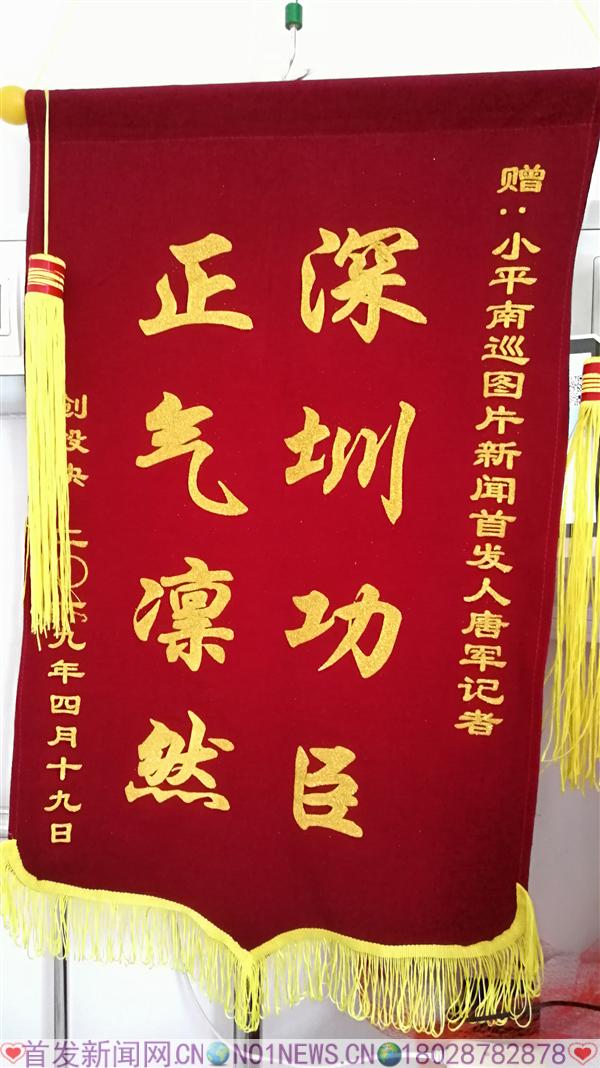 赠:小平南巡图片新闻首发人唐军记者
深圳功臣
正气凛然
创投央 二〇一九年四月十九日
首发新闻网.CN NO1NEWS.CN 18028782878